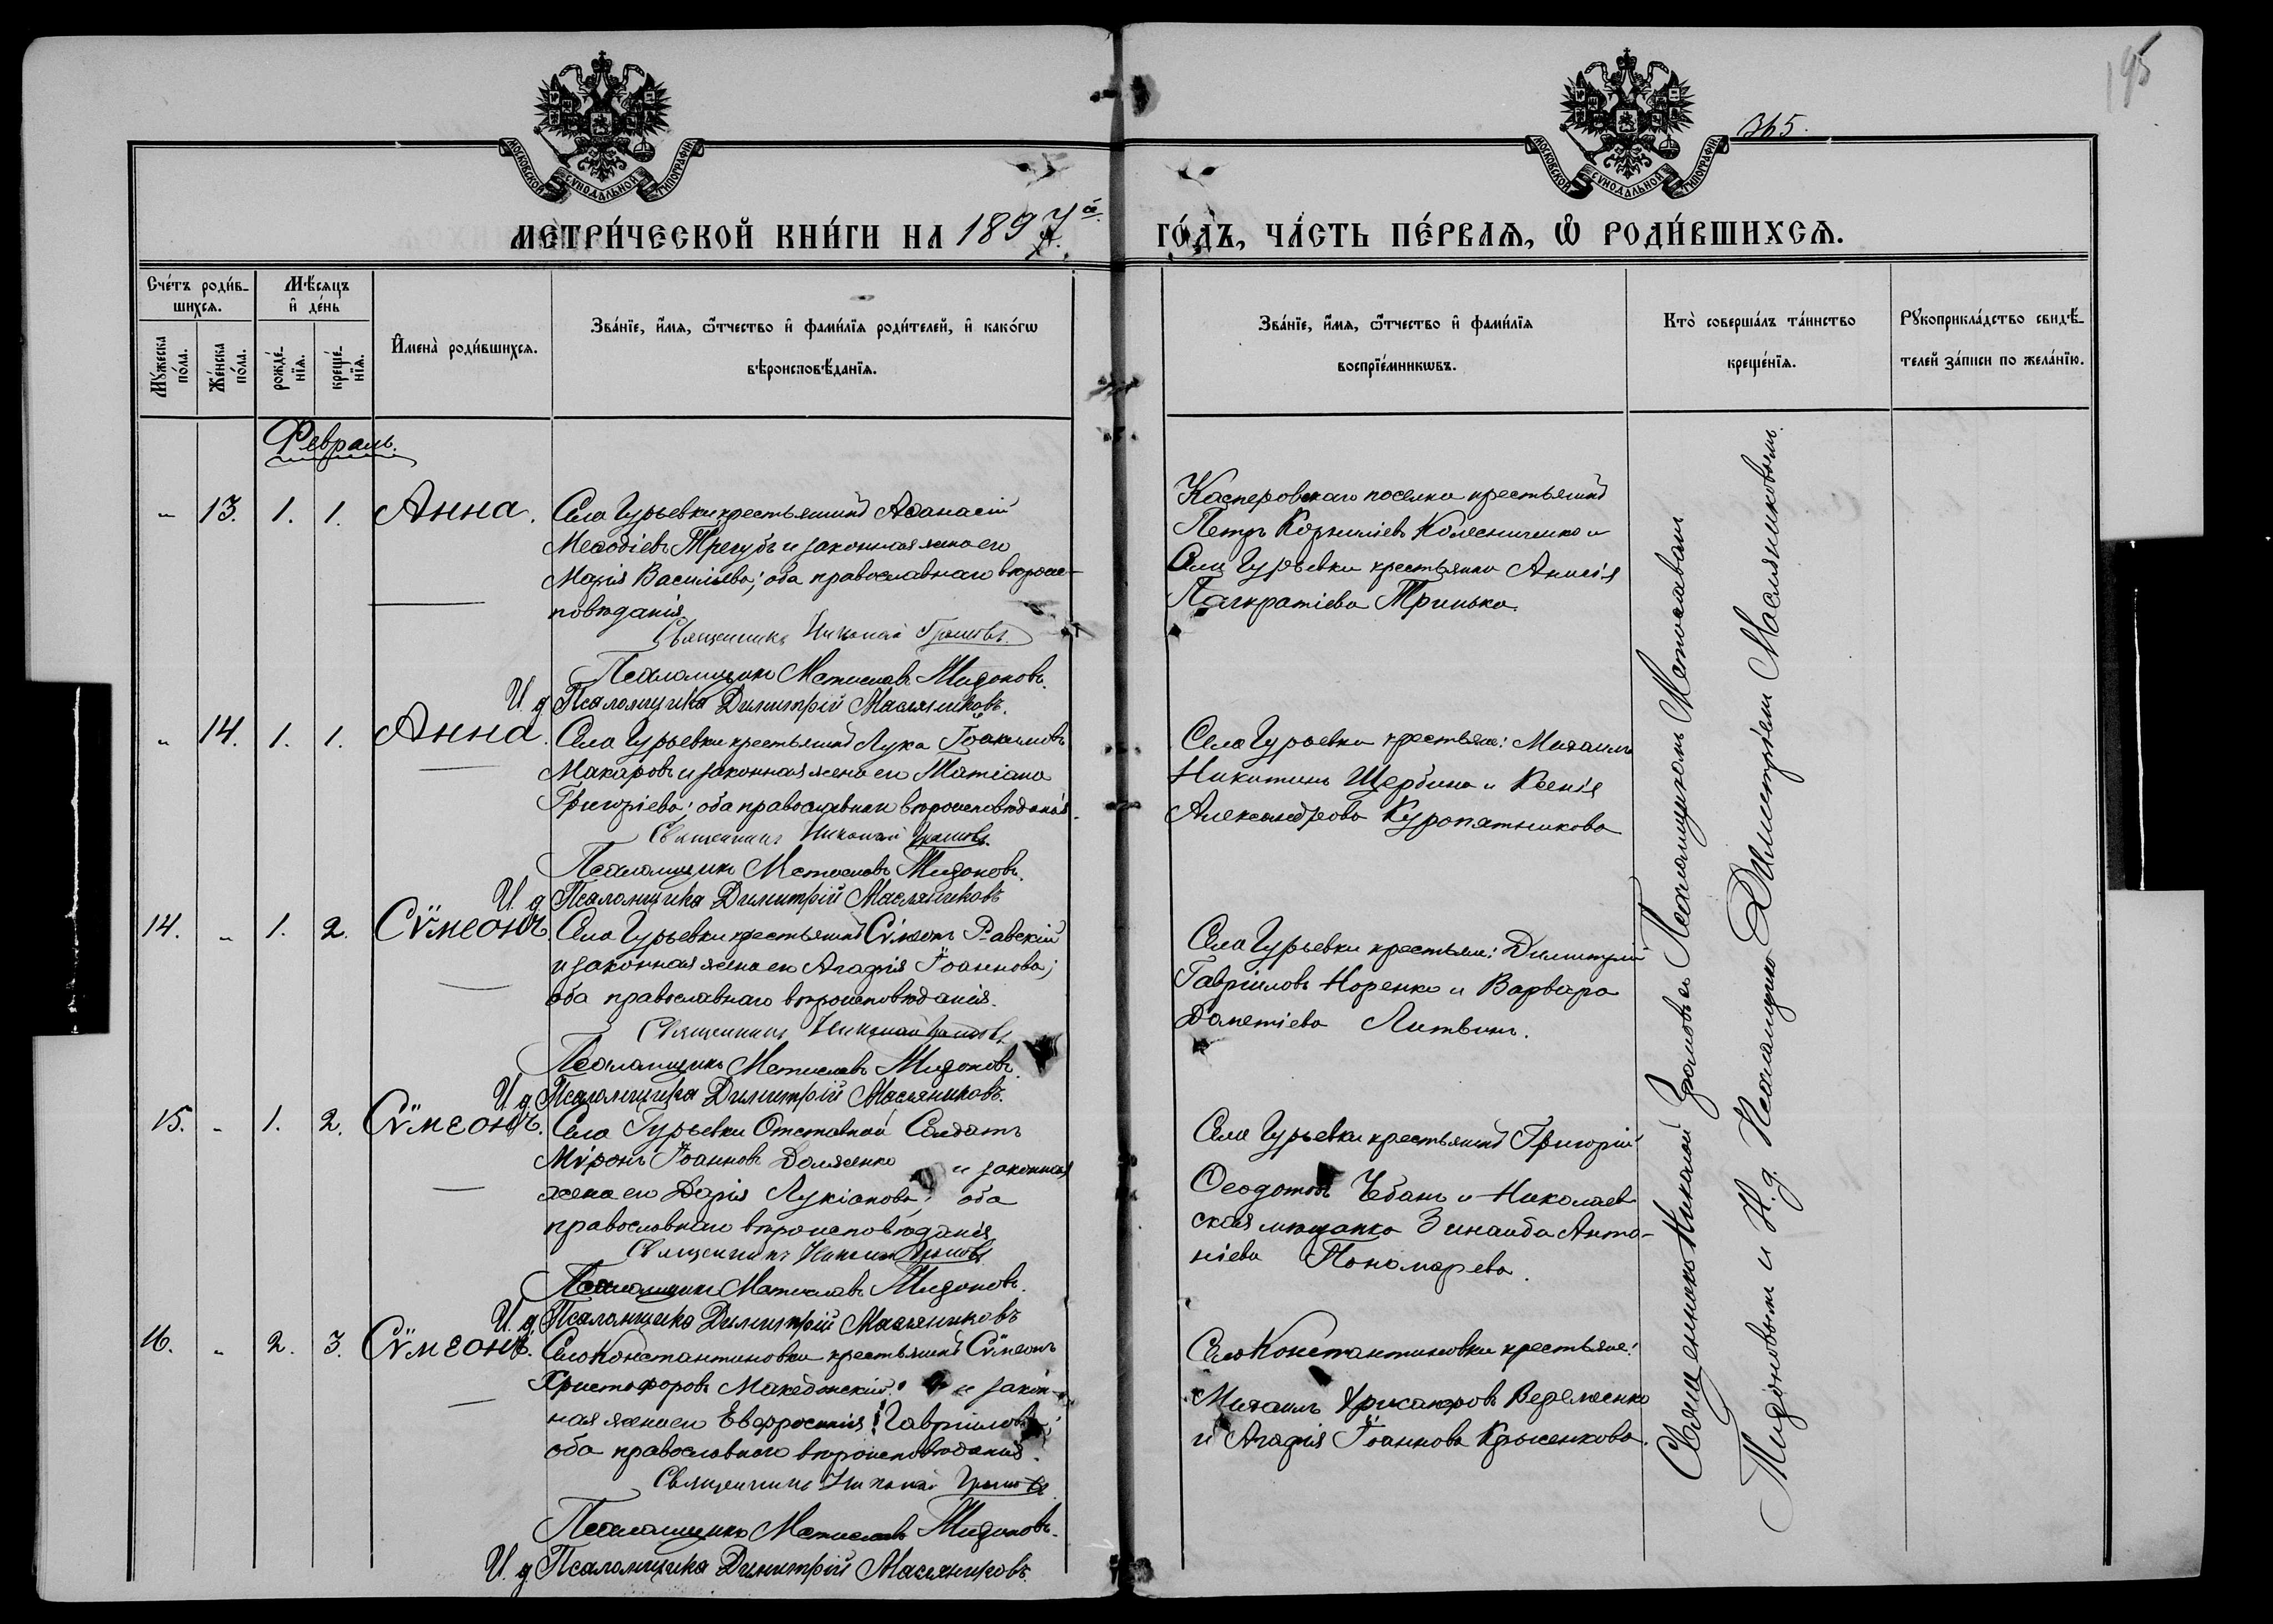 195
365.
МОСКОВСКОЙ СѴНОДАЛЬНОЙ ТИПОГРАФІИ
МОСКОВСКОЙ СѴНОДАЛЬНОЙ ТИПОГРАФІИ
МЕТРИ́ЧЕСКОЙ КНИ́ГИ НА 1897й
ГО́ДЪ, ЧА́СТЬ ПЕ́РВАѦ, Ѡ РОДИ́ВШИХСѦ.
Сче́тъ роди́в-
шихсѧ.
Мꙋ́жеска
по́ла.
Же́нска
по́ла.
Мѣ́сѧцъ
и҆ де́нь
рожде́-
нїѧ.
креще́-
нїѧ.
И҆мена̀ роди́вшихсѧ.
Зва́нїе, и҆́мѧ, ѻ҆́тчество и҆ фами́лїѧ роди́телей, и҆ како́гѡ
вѣроисповѣ́данїѧ.
Зва́нїе, и҆́мѧ, ѻ҆́тчество и҆ фами́лїѧ
воспрїе́мникѡвъ.
Кто̀ соверша́лъ та́инство
креще́нїѧ.
Рꙋкоприкла́дство свидѣ́-
телей за́писи по жела́нїю.
Февраль.
" 13. 1. 1. Анна. Села Гурьевки крестьянинъ Аѳанасій
Меѳодіевъ Трегубъ и законная жена его
Марія Васильева; оба православнаго вѣроис-
повѣданія.
Священникъ Николай Громовъ.
Псаломщикъ Мстиславъ Тидоновъ.
И. д. Псаломщика Димитрій Масляниковъ.
Касперовскаго поселка крестьянинъ
Петръ Корниліевъ Колесниченко и
Села Гурьевки крестьянка Анисія
Панкратіева Тринько.
" 14. 1. 1. Анна. Села Гурьевки крестьянинъ Лука Іоакимовъ
Макаровъ и законная жена его Татіана
Григоріева; оба православнаго вѣроисповѣданія.
Священникъ Николай Громовъ.
Псаломщикъ Мстиславъ Тидоновъ.
И. д. Псаломщика Димитрій Масляниковъ
Села Гурьевки крестьяне: Михаилъ
Никитинъ Щербина и Ксенія
Александрова Куропятникова
14. " 1. 2. Сѵмеонъ. Села Гурьевки крестьянинъ Сѵмеонъ Равскій
и законная жена его Агафія Іоаннова;
оба православнаго вѣроисповѣданія.
Священникъ Николай Громовъ
Псаломщикъ Мстиславъ Тидоновъ.
И. д. Псаломщика Димитрій Масляниковъ.
Села Гурьевки крестьяне: Димитрій
Гавріиловъ Норенко и Варвара
Дометіева Литвинъ.
15. " 1. 2. Сѵмеонъ. Села Гурьевки Отставной Солдатъ
Мѵронъ Іоанновъ Долженко и законная
жена его Дарія Лукіанова; оба
православнаго вѣроисповѣданія
Священникъ Николай Громовъ
Псаломщикъ Мстиславъ Тидоновъ.
И. д. Псаломщика Димитрій Масляниковъ
Села Гурьевки крестьянинъ Григорій
Ѳеодотовъ Чебанъ и Николаев-
ская мѣщанка Зинаида Анто-
ніева Пономарева.
16. " 2. 3. Сѵмеонъ. Села Константиновки крестьянинъ Сѵмеонъ
Христофоровъ Македонскій и закон-
ная жена его Евфросинія Гавріилова;
оба православнаго вѣроисповѣданія.
Священникъ Николай Громовъ
Псаломщикъ Мстиславъ Тидоновъ.
И. д. Псаломщика Димитрій Масляниковъ.
Села Константиновки крестьяне:
Михаилъ Хрисанфовъ
и Агафія Іоаннова Крыженкова.
Священникъ Николай Громовъ съ Псаломщикомъ Мстиславомъ
Тидоновымъ и И. д. Псаломщика Димитріемъ Масляниковымъ.